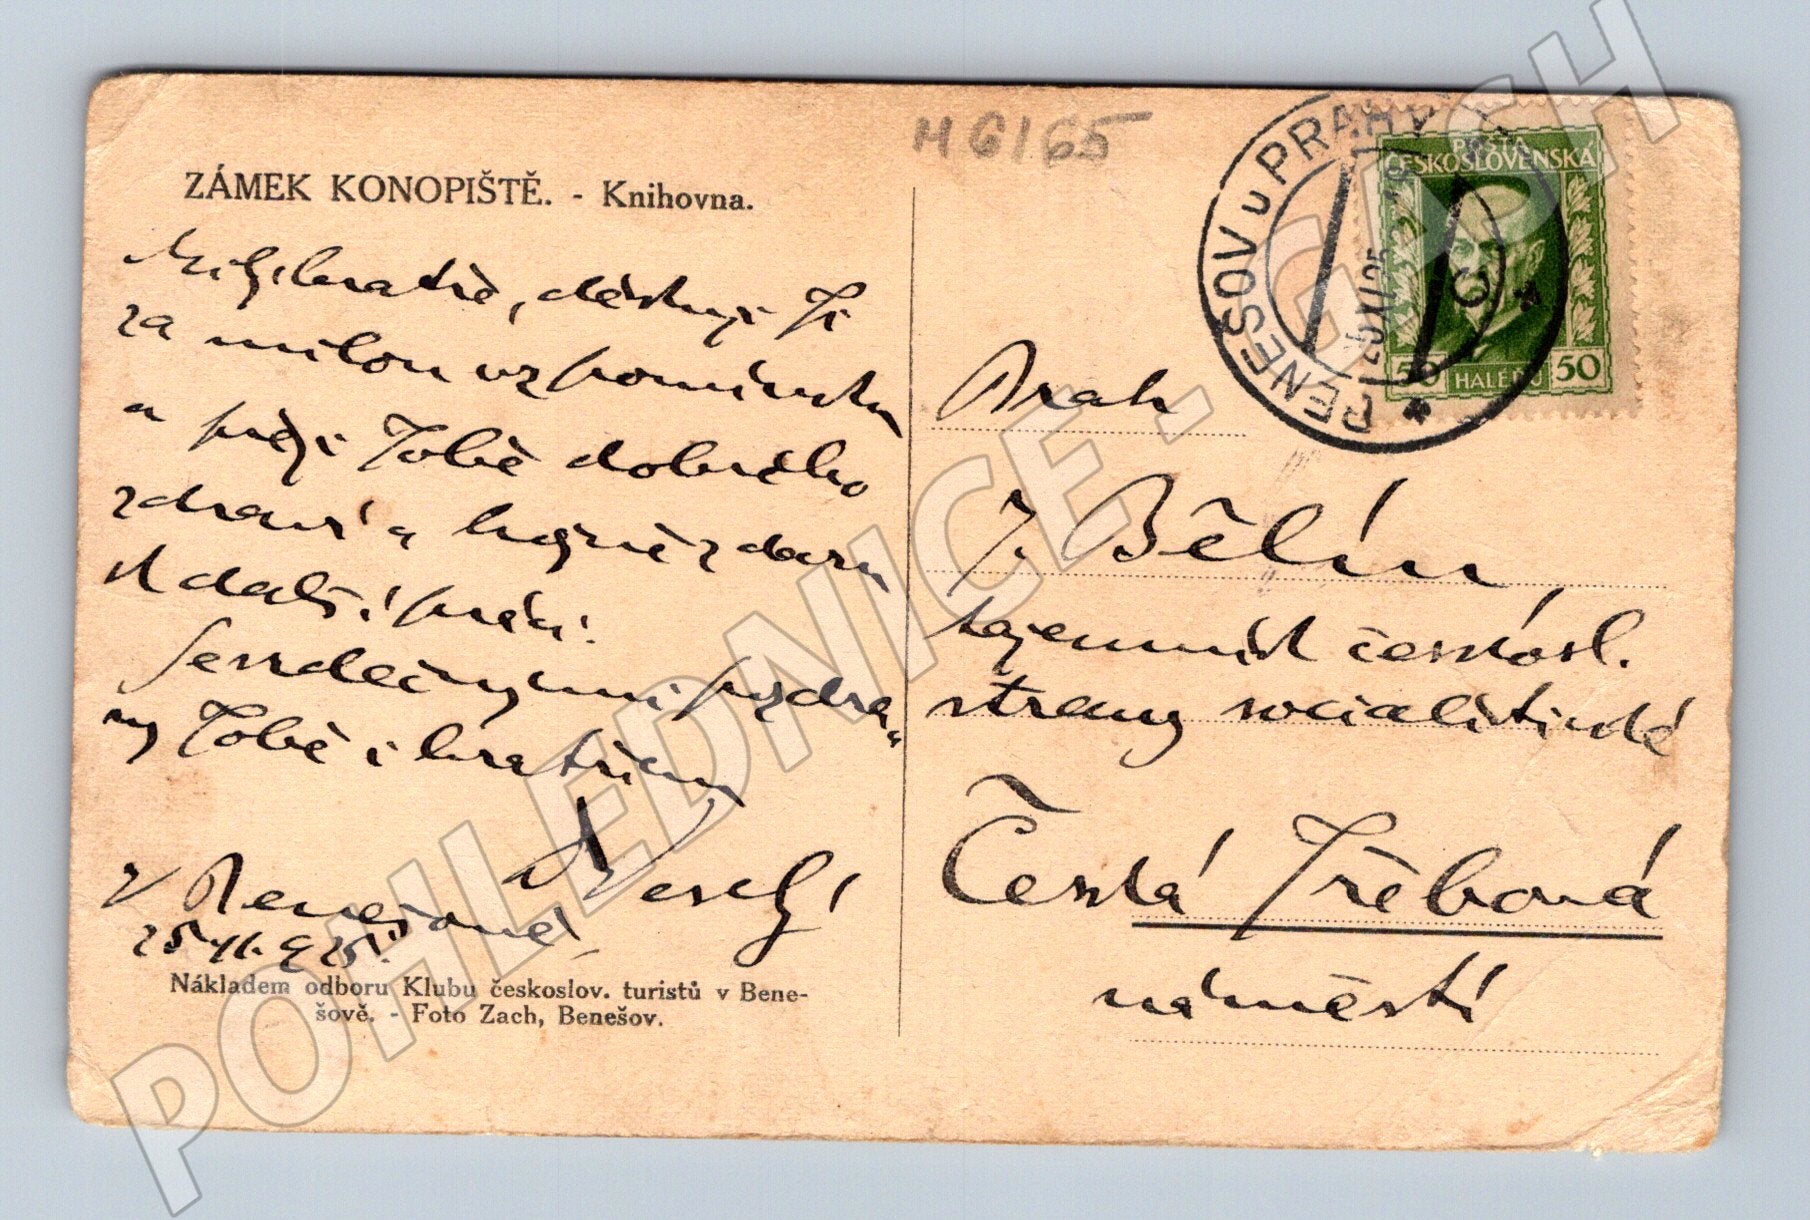 M 6165
ZÁMEK KONOPIŠTĚ. - Knihovna.
Milý bratře, děkuji Ti
za milou vzpomínku
a přeji Tobě dobrého
zdraví a hojně zdaru
k další práci.
Srdečnými pozdra-
vy Tobě i bratřím
V Benešově
25.XI.925.
Nákladem odboru Klubu českoslov. turistů v Bene-
šově. - Foto Zach, Benešov.
BENEŠOV u PRAHY
POŠTA
ČESKOSLOVENSKÁ
50 HALÉŘŮ 50
J. Bělín
tajemník českosl.
strany socialistické
Česká Třebová
náměstí
POHLEDNICE - GASH